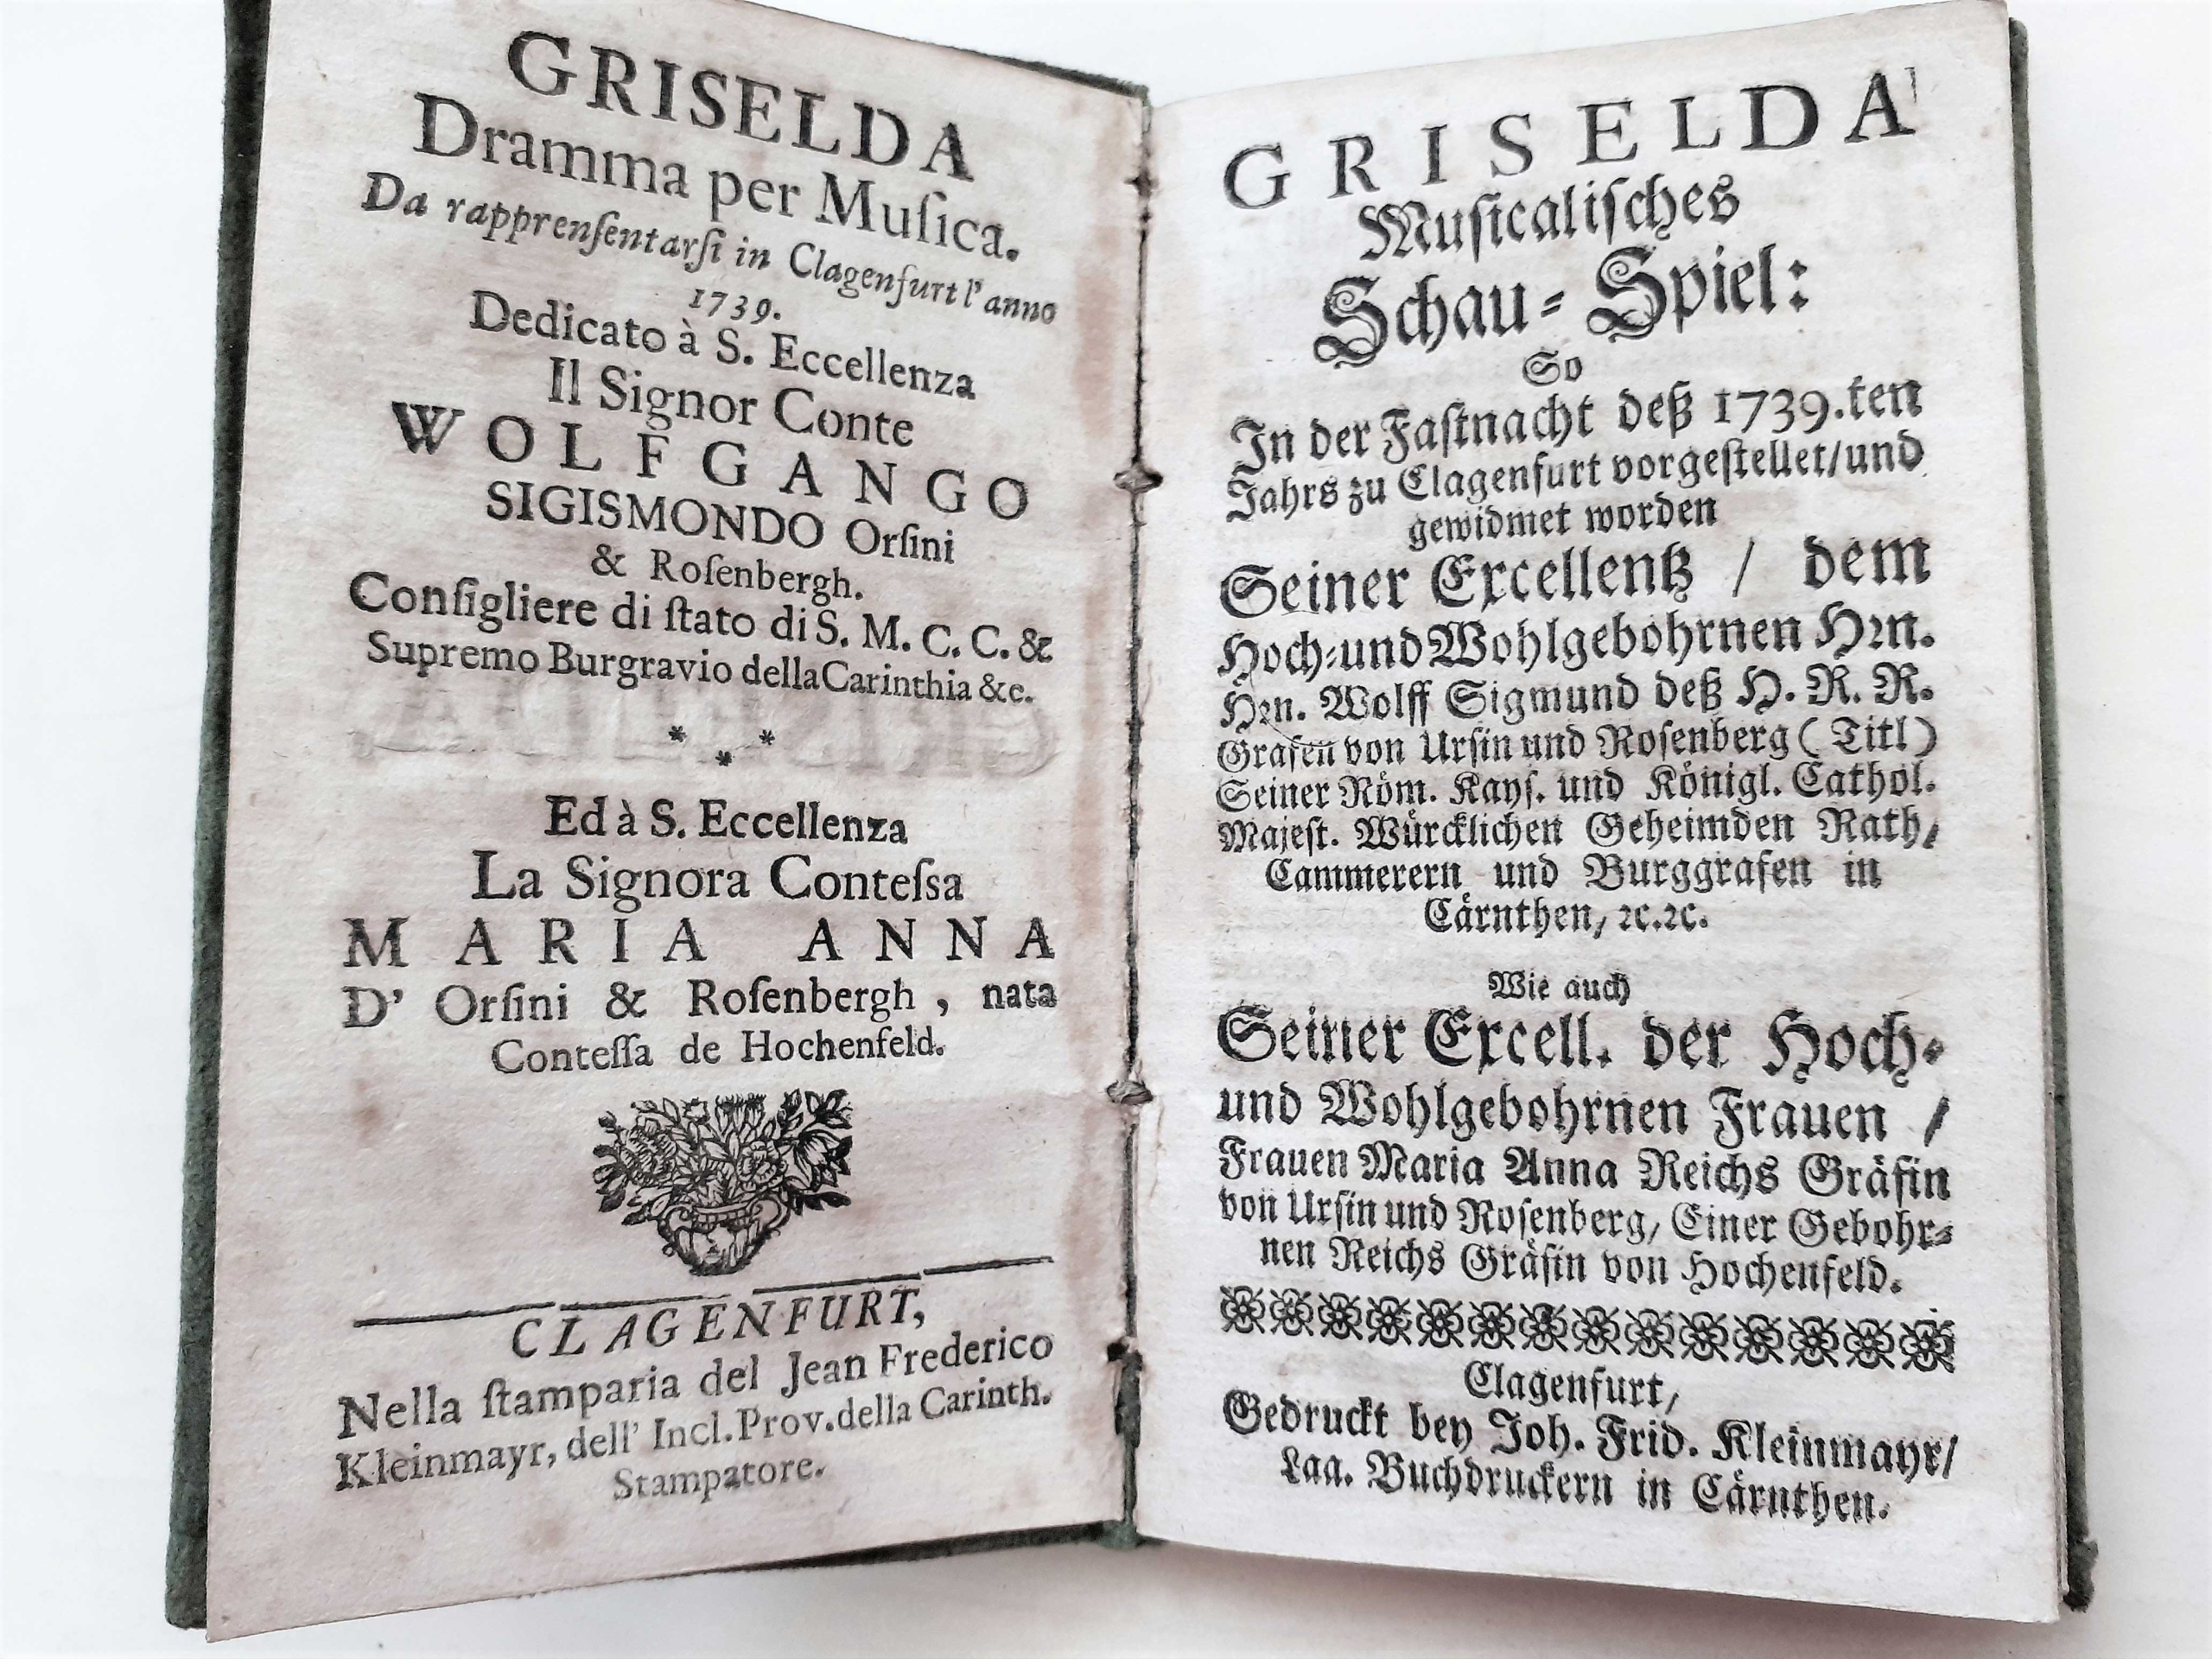 GRISELDA
Dramma per Muſica.
Da rapprenſentarſi in Clagenfurt l' anno
1739.
Dedicato à S. Eccellenza
Il Signor Conte
WOLFGANGO
SIGISMONDO Orſini
& Roſenbergh.
Conſigliere di ſtato di S. M. C. C. &
Supremo Burgravio della Carinthia &c.
* * *
Ed à S. Eccellenza
La Signora Conteſsa
MARIA ANNA
D' Orſini & Roſenbergh, nata
Conteſſa de Hochenfeld.
CLAGENFURT,
Nella ſtamparia del Jean Frederico
Kleinmayr, dell' Incl. Prov. della Carinth.
Stampatore.
GRISELDA
Muſicaliſches
Schau-Spiel:
So
In der Faſtnacht deß 1739.ten
Jahrs zu Clagenfurt vorgeſtellet/und
gewidmet worden
Seiner Excellentz / dem
Hoch-und Wohlgebohrnen Hrn.
Hrn. Wolff Sigmund deß H. R. R.
Grafen von Urſin und Roſenberg (Titl)
Seiner Röm. Kayſ. und Königl. Cathol.
Majeſt. Würcklichen Geheimden Rath/
Cammerern und Burggrafen in
Cärnthen, ꝛc.ꝛc.
Wie auch
Seiner Excell. der Hoch-
und Wohlgebohrnen Frauen /
Frauen Maria Anna Reichs Gräfin
von Urſin und Roſenberg, Einer Gebohr-
nen Reichs Gräfin von Hochenfeld.
Clagenfurt,
Gedruckt bey Joh. Frid. Kleinmayr/
Laa. Buchdruckern in Cärnthen.